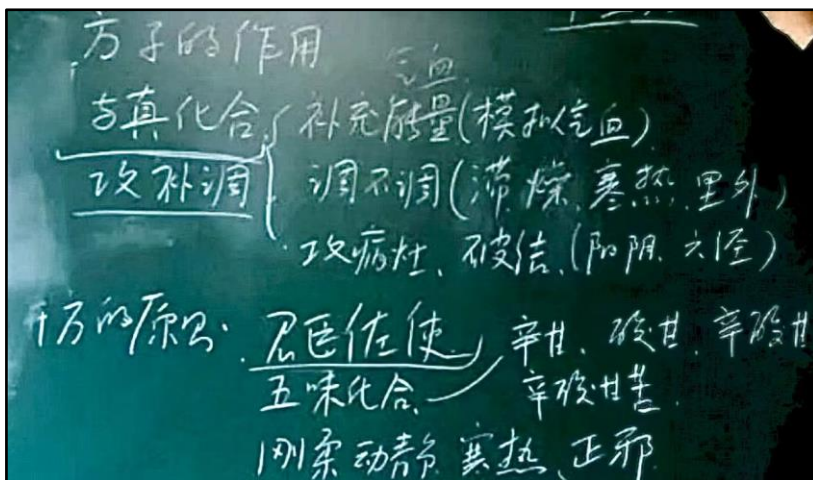 方子的作用
气血
与真化合 补充能量(模拟气血)
攻补调 调不调(滞燥、寒热、里外)
攻病灶、破结、(阳阴、六经)
方的原则. 君臣佐使 辛甘、酸甘、辛酸甘
五味化合、 辛酸甘苦
刚柔动静 寒热、正邪